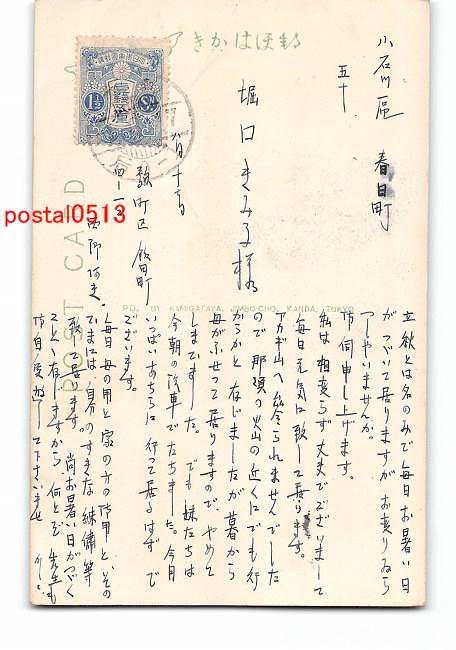 郵便はかきア
小石川區 春日町
五十
堀口きみ子様
八月十七日
麹町区 飯田町
四ノ一
POST CARD
1½
postal0513
PD. BY KAMIGATAYA, JIMBO-CHO, KANDA, TOKYO
立秋とは名のみで毎日お暑い日
がつづいて居りますが お変りゐら
つしやいませんか。
御伺申し上げます。
私は相変らず丈夫でございまして
毎日元気に致して居ります。
アカギ山へは登られませんでした
ので 那須の火山の近くにでも行
からかと存じましたが 暮から
母がふせつて居りますので、やめて
しまいました。でも 妹たちは
今朝の汽車でたちました。今月
いつぱいあちらに行つて居るはずで
ございます。
毎日 母の用と家の方の御用と その
ひまには、自分のすきな 刺繍等
致して居ります。尚お暑い日がつづく
ことと存じますから 何とぞ 先生も
御自愛遊ばして下さいませ